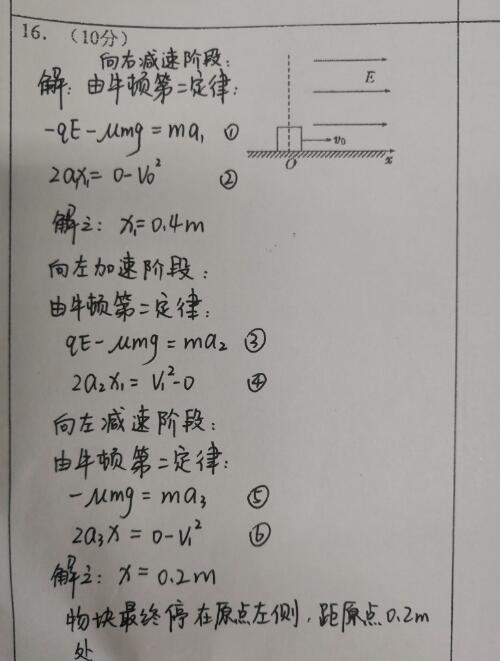 16. (10分)
向右减速阶段:
解: 由牛顿第二定律:
-qE-μmg=ma₁ ①
2a₁x₁=0-v₀² ②
解之: x₁=0.4m
向左加速阶段:
由牛顿第二定律:
qE-μmg=ma₂ ③
2a₂x₁=v₁²-0 ④
向左减速阶段:
由牛顿第二定律:
-μmg=ma₃ ⑤
2a₃x=0-v₁² ⑥
解之: x=0.2m
物块最终停在原点左侧, 距原点0.2m
处
E
v₀
O
x